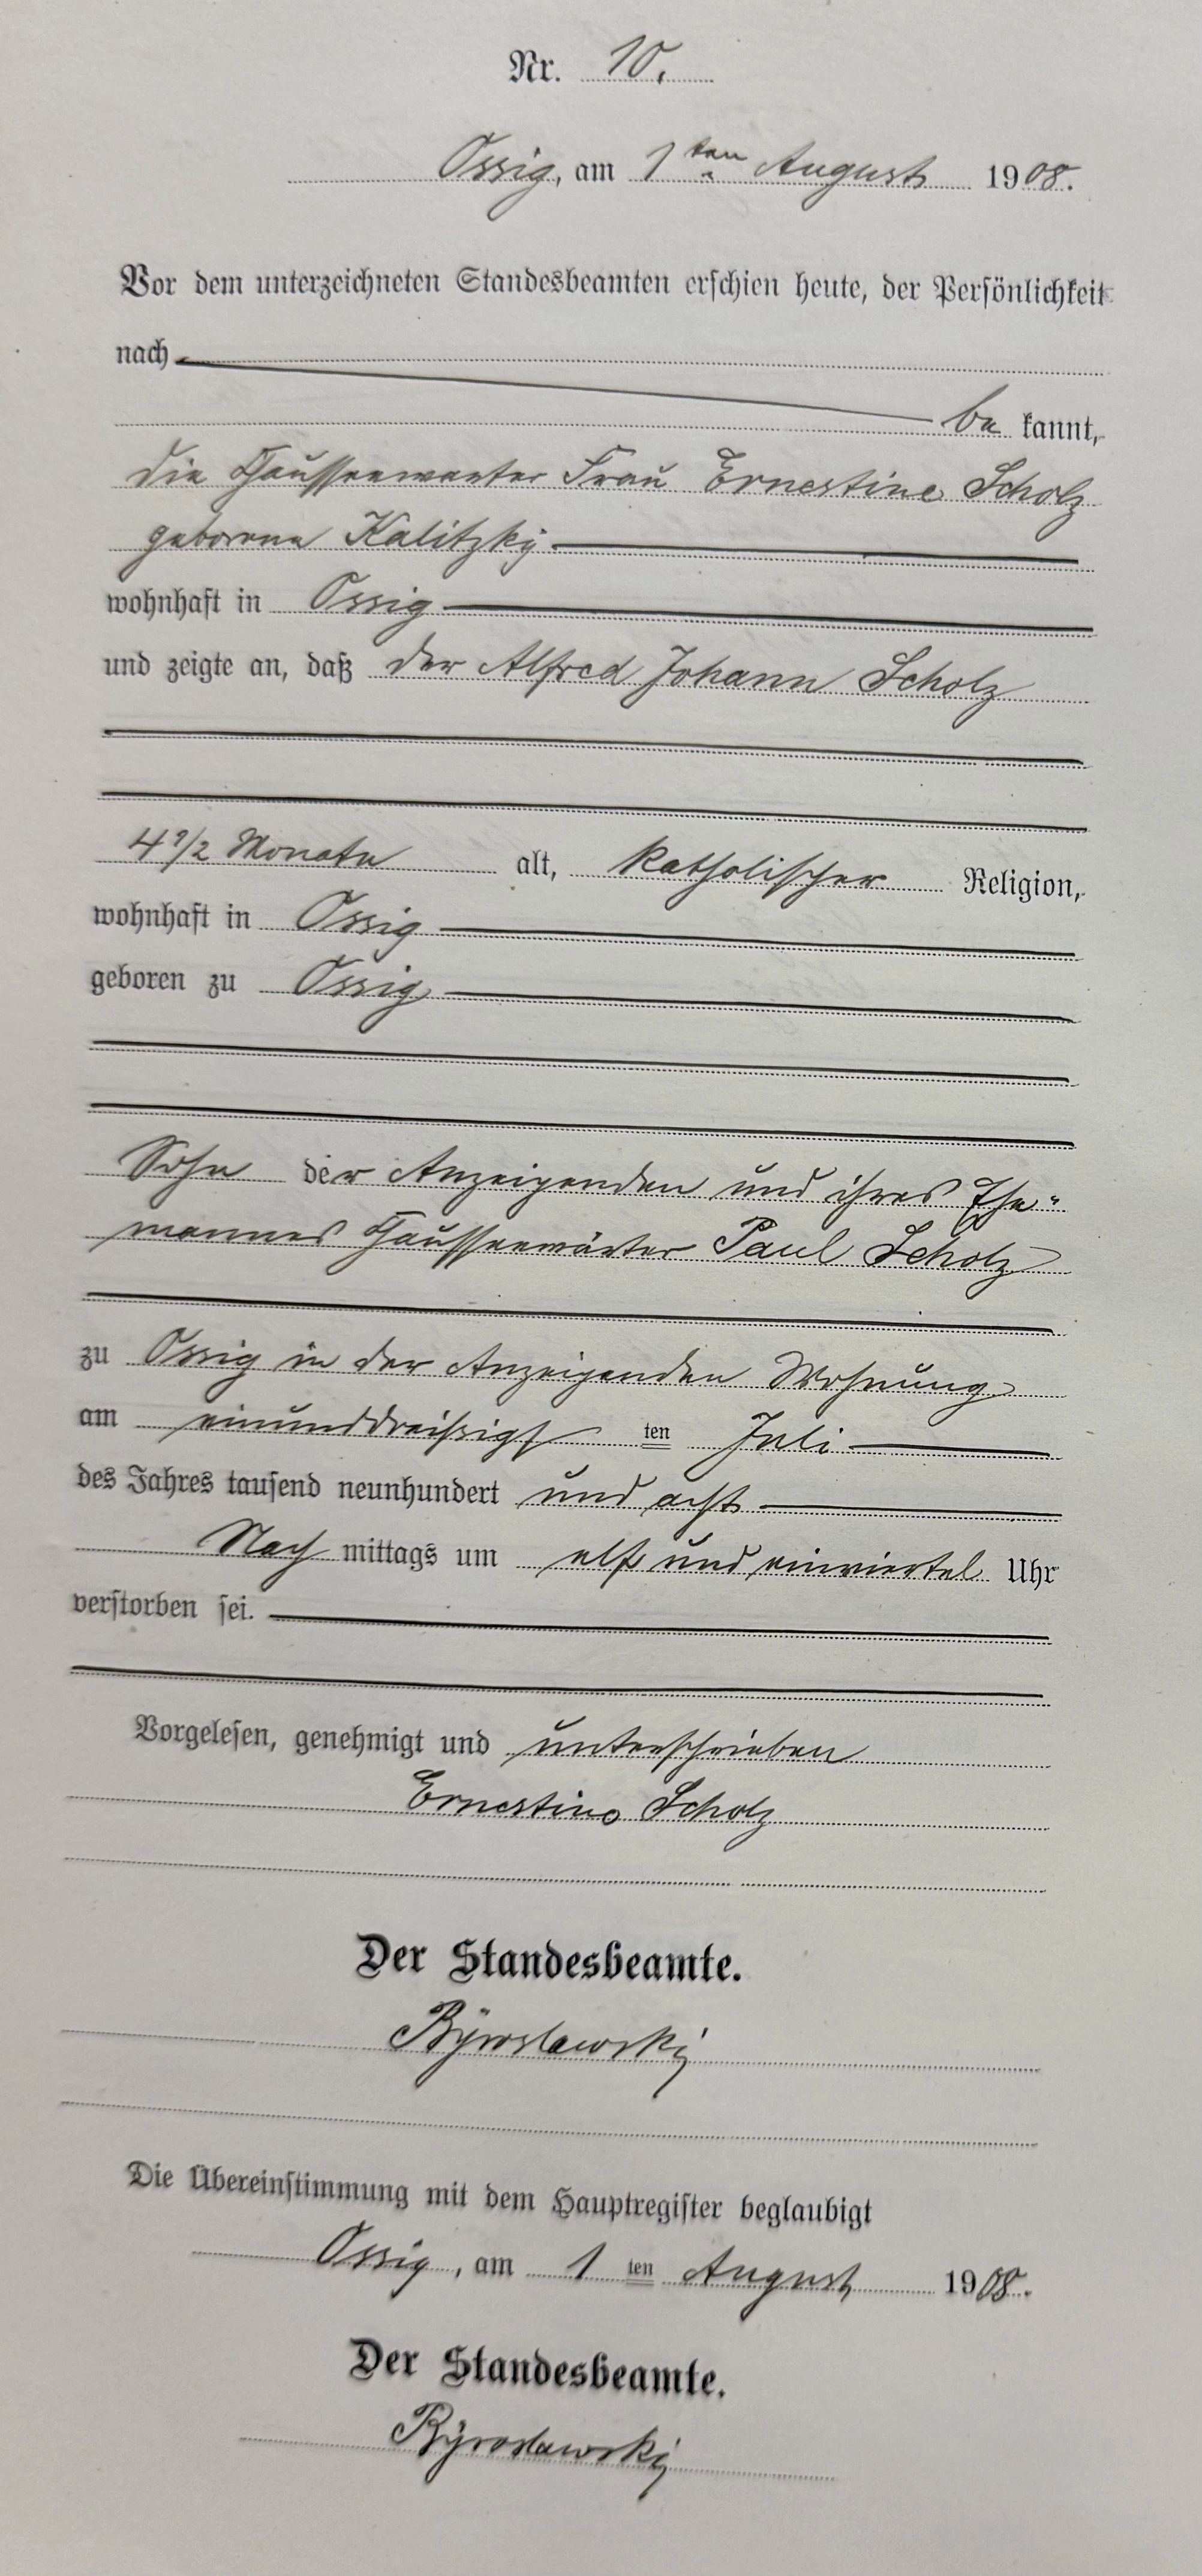 Nr. 10.
Ossig, am 1ten August 1908.
Vor dem unterzeichneten Standesbeamten erschien heute, der Persönlichkeit
nach
be kannt,
die Chausseewärter Frau Ernestine Scholz
geborene Kalitzky
wohnhaft in Ossig
und zeigte an, daß der Alfred Johann Scholz
4 1/2 Monate alt, katholischer Religion,
wohnhaft in Ossig
geboren zu Ossig
Sohn der Anzeigenden und ihres Ehe-
mannes Chausseewärter Paul Scholz
zu Ossig in der Anzeigenden Wohnung
am einunddreißigsten Juli
des Jahres tausend neunhundert und acht
Nach mittags um elf und einviertel Uhr
verstorben sei.
Vorgelesen, genehmigt und unterschrieben
Ernestine Scholz
Der Standesbeamte.
Die Übereinstimmung mit dem Hauptregister beglaubigt
Ossig, am 1 ten August 1908.
Der Standesbeamte.